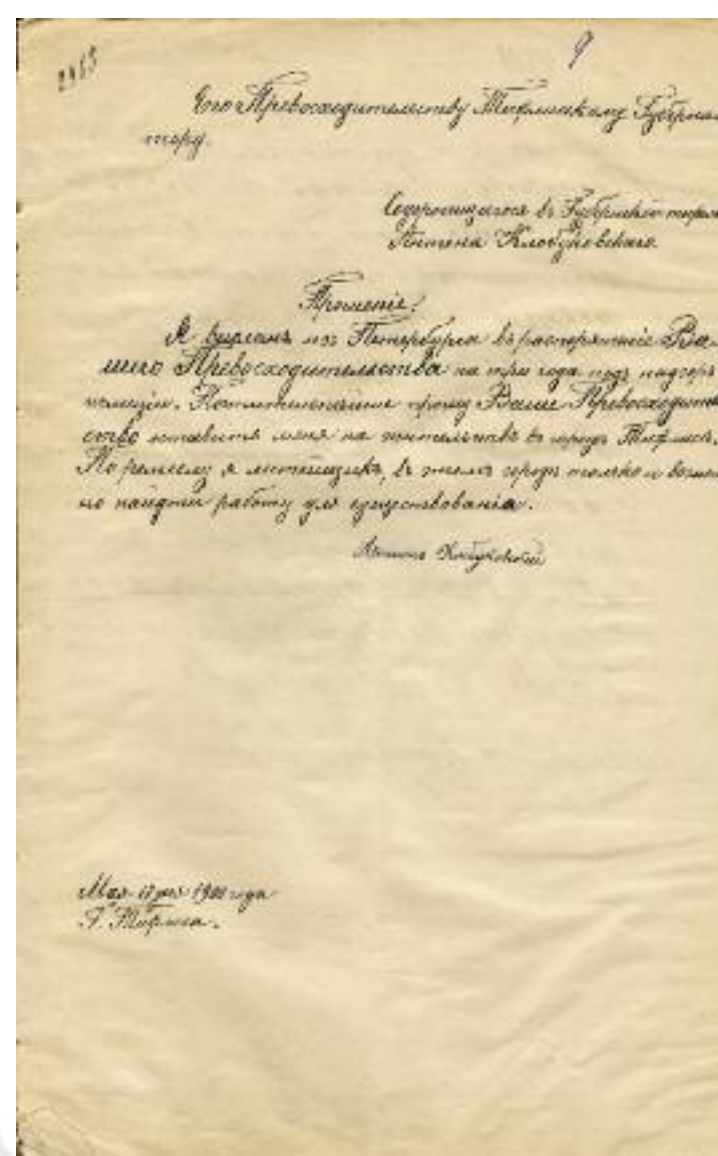 2153
9
Его Превосходительству Тифлисскому Губерна-
тору.
Содержащагося въ Губернской тюрьм
Антона Клобуковскаго.
Прошеніе.
Я высланъ изъ Петербурга въ распоряженіе Ва-
шего Превосходительства на три года подъ надзоръ
полиціи. Почтительнейше прошу Ваше Превосходитель
ство оставить меня на жительствѣ въ городѣ Тифлисѣ.
По ремеслу я литейщикъ, въ этомъ городѣ только и возмож
но найдти работу для существованія.
Антонъ Клобуковскій
Мая 17 дня 1900 года
Г. Тифлисъ.